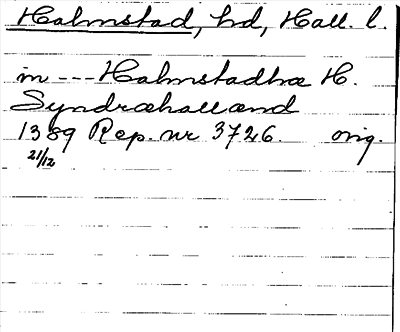 Halmstad, hd, Hall. l.
in --- Halmstadhæ H.
Syndræhalland
1389 Rep. nr 3726. orig.
21/12